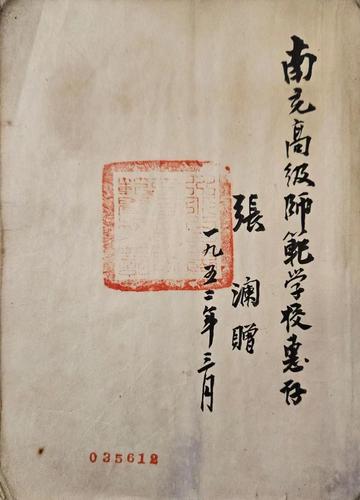 南充高级师範学校惠存
張瀾贈
一九五三年三月
035612